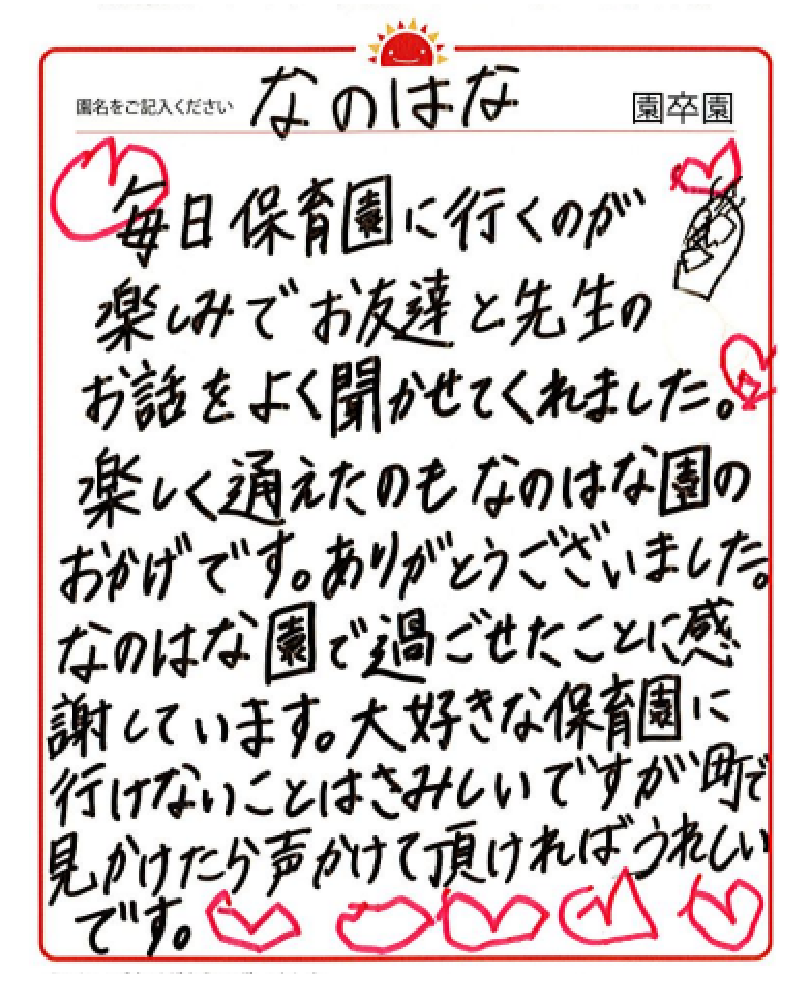 園名をご記入ください なのはな 園卒園
毎日保育園に行くのが
楽しみでお友達と先生の
お話をよく聞かせてくれました。
楽しく通えたのもなのはな園の
おかげです。ありがとうございました。
なのはな園で過ごせたことに感
謝しています。大好きな保育園に
行けないことはさみしいですが町で
見かけたら声かけて頂ければうれしい
です。